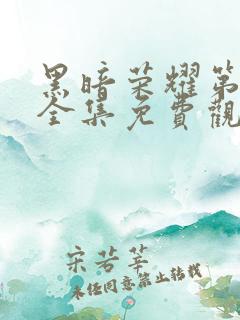 黑暗荣耀第
全集免費觀
宋芳莘
未经同意禁止转载